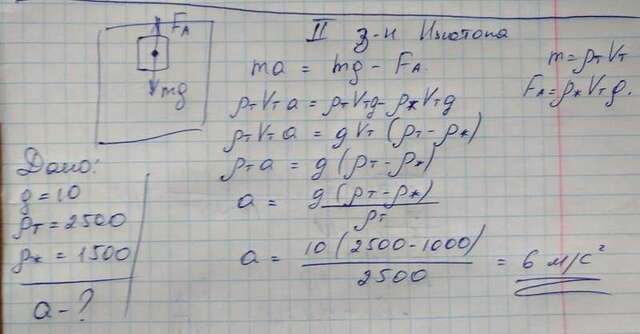 F_A
mg
II з-н Ньютона
ma = mg - F_A.
m = ρ_т V_т
F_A = ρ_ж V_т g.
ρ_т V_т a = ρ_т V_т g - ρ_ж V_т g
ρ_т V_т a = g V_т (ρ_т - ρ_ж)
ρ_т a = g (ρ_т - ρ_ж)
a = g (ρ_т - ρ_ж) / ρ_т
a = 10 (2500 - 1000) / 2500 = 6 м/с²
Дано:
g = 10
ρ_т = 2500
ρ_ж = 1500
a - ?